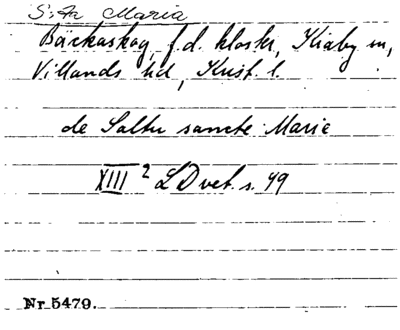 S:ta Maria
Bäckaskog, f.d. kloster, Kiaby sn,
Villands hd, Krist. l.
de Saltu sancte Marie
XIII 2 LDvet. s. 49
Nr. 5479.